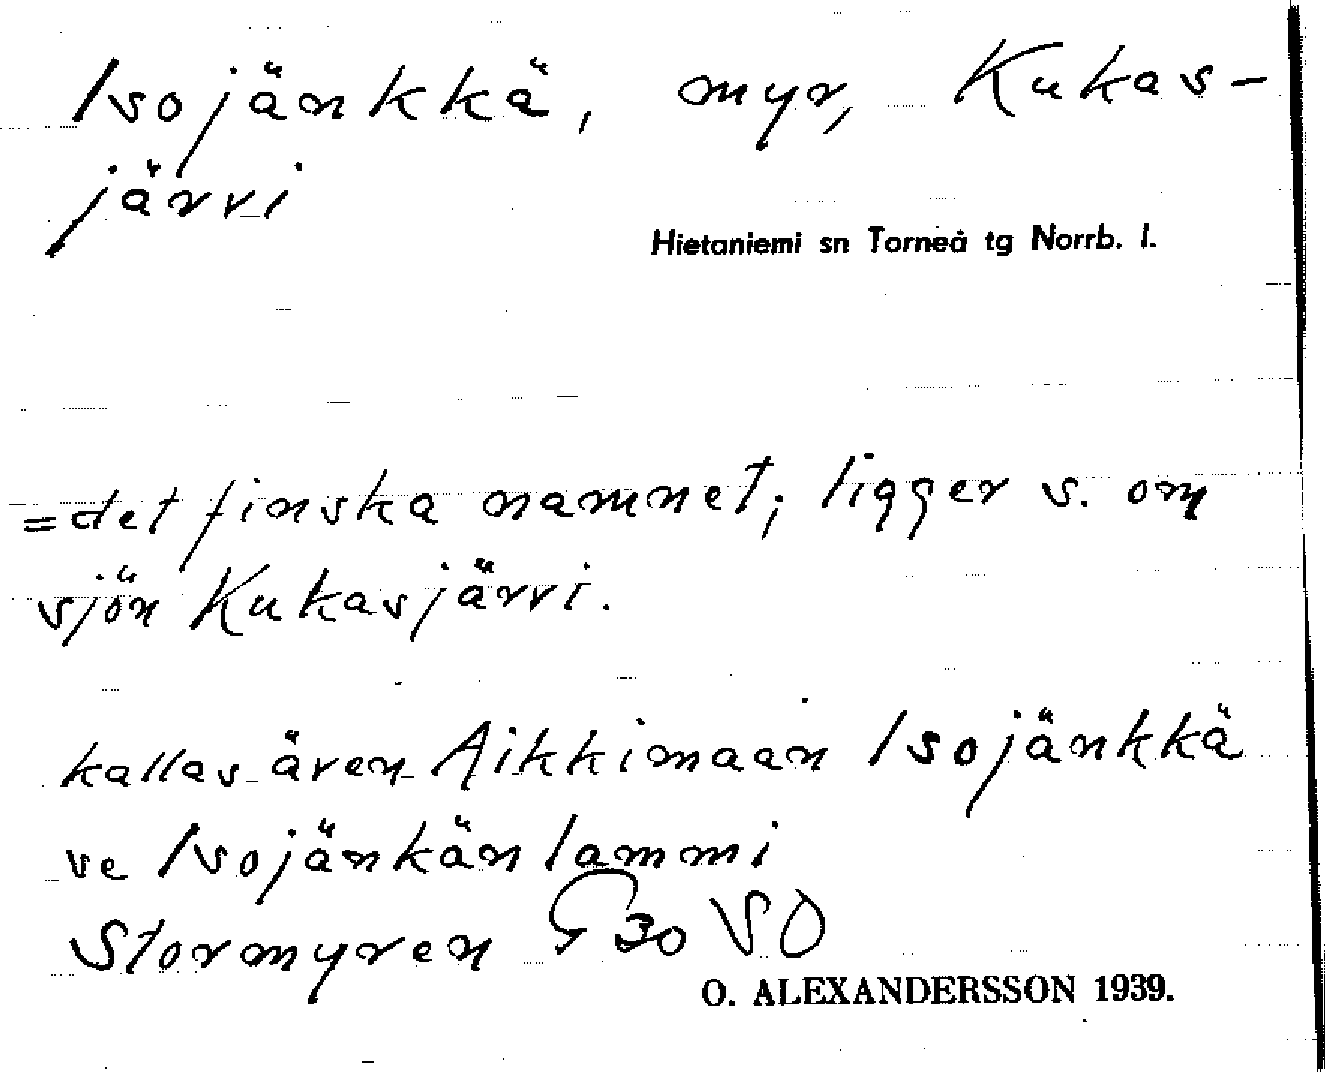 Isojänkkä, myr, Kukas-
järvi
Hietaniemi sn Torneå tg Norrb. l.
=det finska namnet; ligger s. om
sjön Kukasjärvi.
kallas även Aikkimaan Isojänkkä
se Isojänkänlammi
Stormyren G 30 SO
O. ALEXANDERSSON 1939.